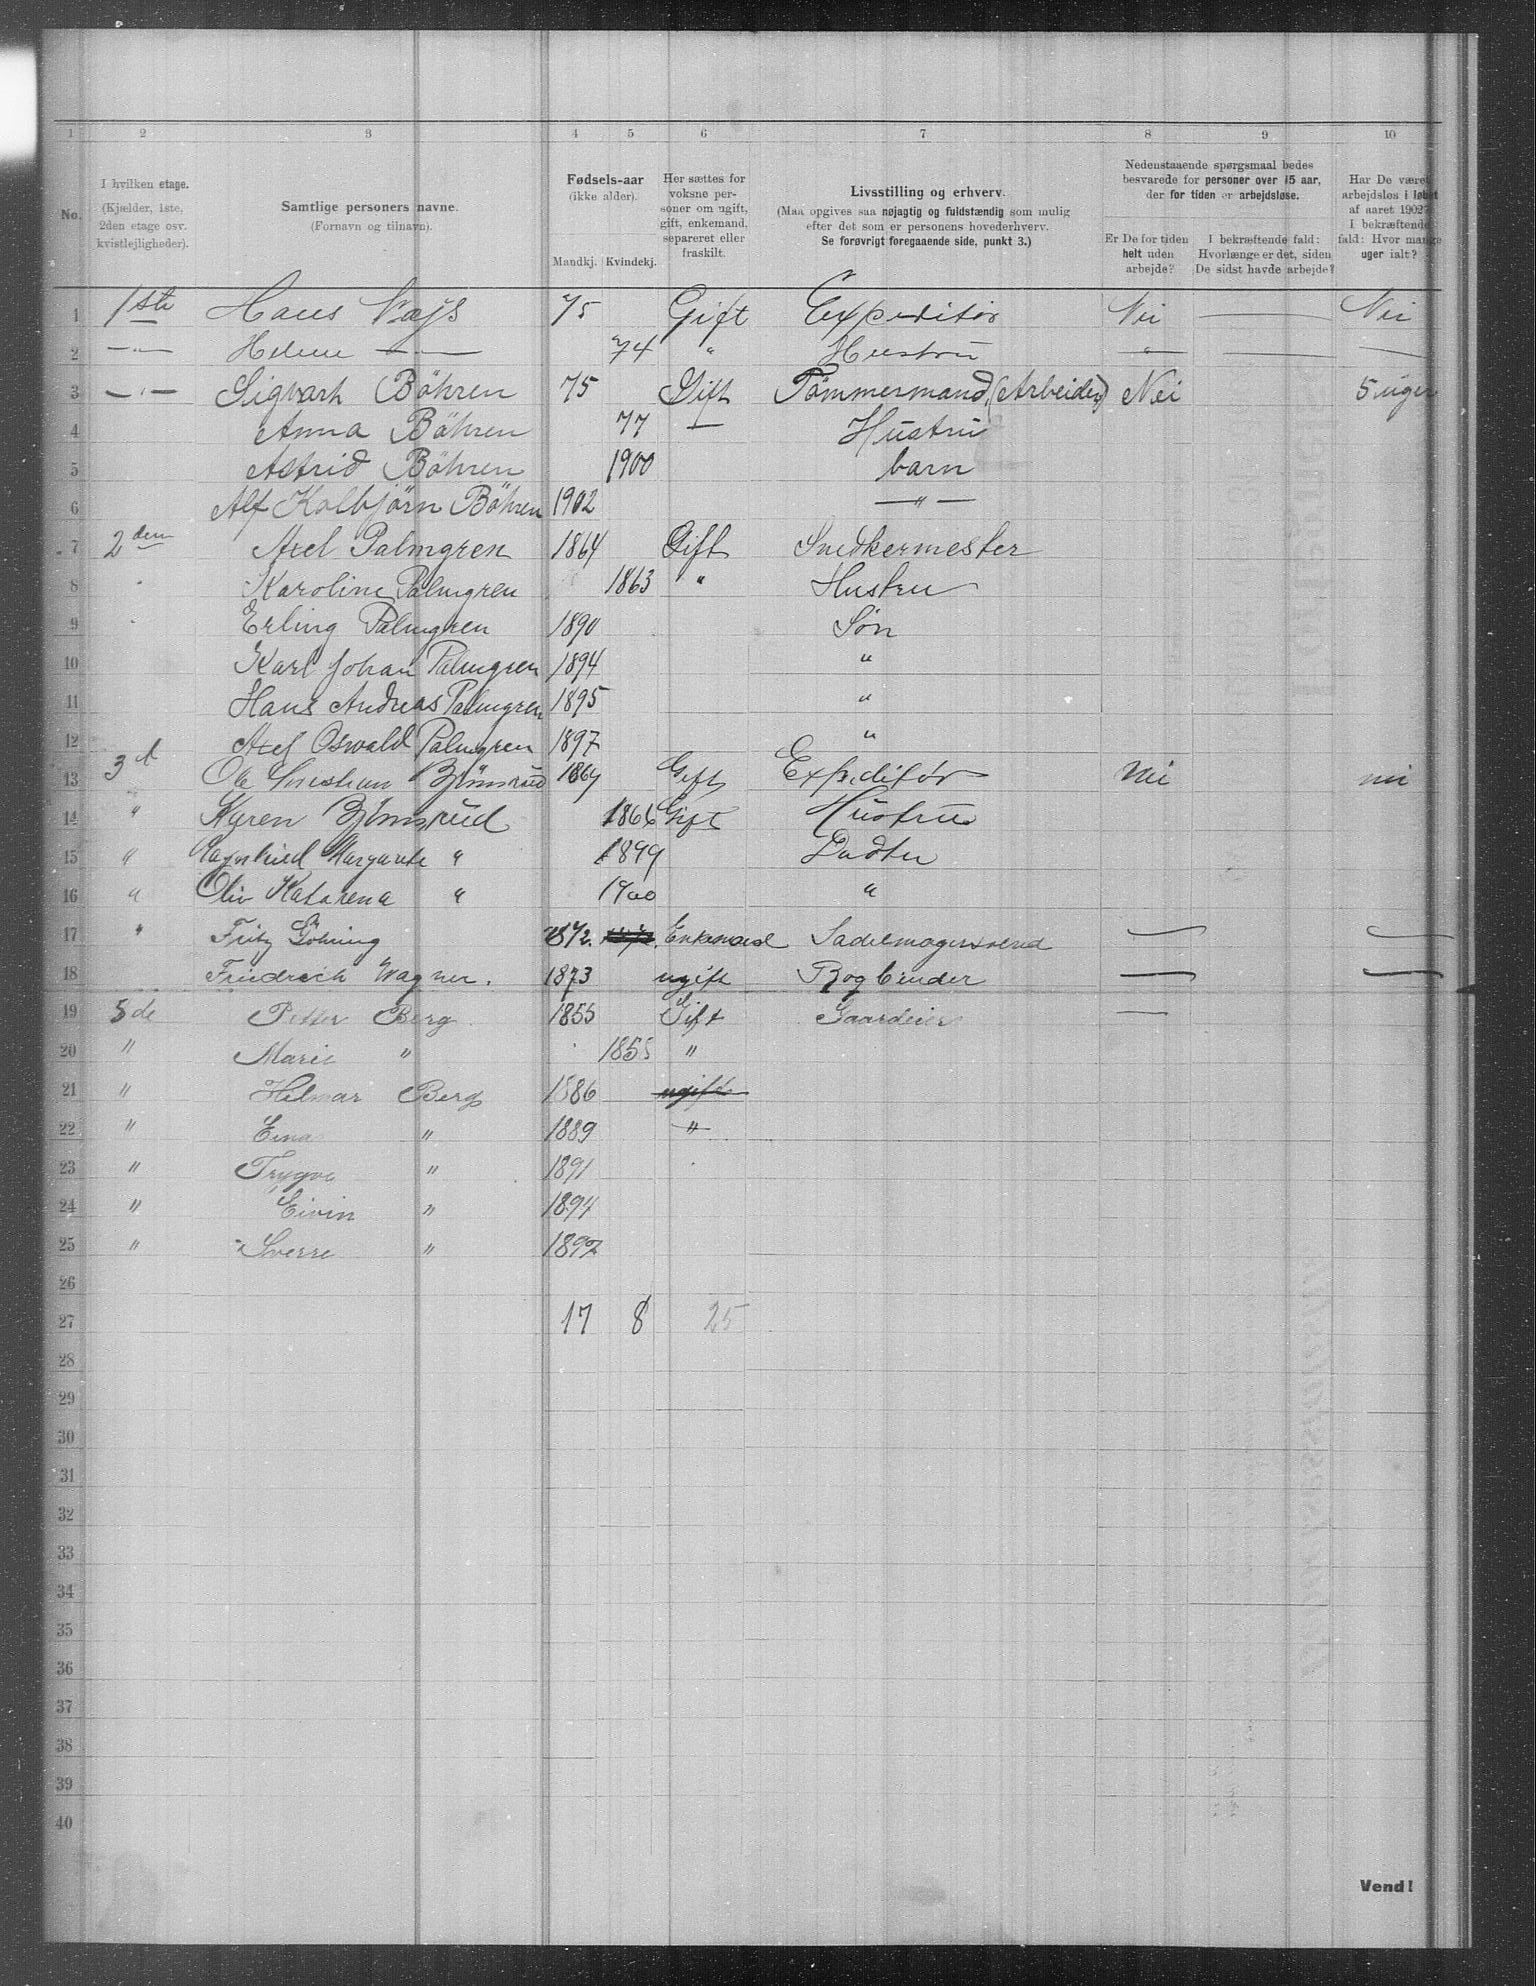 1 2 3 4 5 6 7 8 9 10
No.
I hvilken etage. (Kjælder, 1ste, 2den etage osv. kvistlejligheder).
Samtlige personers navne. (Fornavn og tilnavn).
Fødsels-aar (ikke alder). Mandkj. Kvindekj.
Her sættes for voksne personer om ugift, gift, enkemand, separeret eller fraskilt.
Livsstilling og erhverv. (Maa opgives saa nøjagtig og fuldstændig som mulig efter det som er personens hovederhverv. Se forøvrigt foregaaende side, punkt 3.)
Nedenstaaende spørgsmaal bedes besvarede for personer over 15 aar, der for tiden er arbejdsløse.
Er De for tiden helt uden arbejde?
I bekræftende fald: Hvorlænge er det, siden De sidst havde arbejde?
Har De været arbejdsløs i løbet af aaret 1902? I bekræftende fald: Hvor mange uger ialt?
1 1ste Hans 75 Gift Expeditør Nei — Nei
2 —"— Helene —"— 74 " Hustru " — —
3 —"— Sigvart Böhren 75 Gift Tömmermand, (Arbeider) Nei 5 uger
4 Anna Böhren 77 — Hustru
5 Astrid Böhren 1900 barn
6 Alf Kolbjörn Böhren 1902 —"—
7 2den Axel Palmgren 1864 Gift Snedkermester
8 Karoline Palmgren 1863 " Hustru
9 Erling Palmgren 1890 Søn
10 Karl Johan Palmgren 1894 "
11 Hans Andreas Palmgren 1895 "
12 Axel Oswald Palmgren 1897 "
13 3d Ole Christian Bjömsrud 1864 Gift Expeditør Nei nei
14 " Karen Bjömsrud 1866 Gift Hustru
15 " Ragnhild Margarete " 1899 Dadter
16 " Oliv Katarena " 1900 "
17 " Fritz Göhring 1872. Enkemand Sadelmagersvend — —
18 Friedrich Wagner. 1873 ugift Bogbinder — —
19 5de Petter Berg 1855 Gift Gaardeier —
20 " Marie " 1855 "
21 " Hilmar Berg 1886 ugift
22 " Einar " 1889 "
23 " Trygve " 1891
24 " Eivin " 1894
25 " Sverre " 1897
26
27 17 8 25
28
29
30
31
32
33
34
35
36
37
38
39
40
Vend!